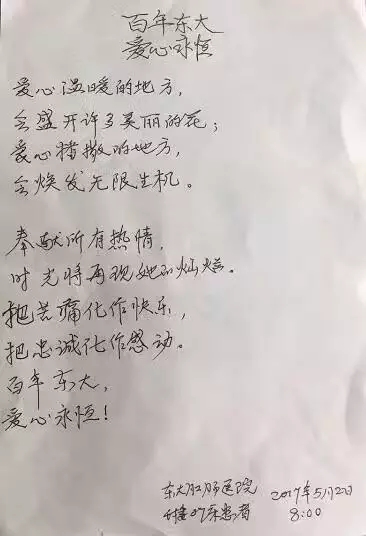 百年东大
爱心永恒
爱心温暖的地方，
会盛开许多美丽的花；
爱心播撒的地方，
会焕发无限生机。
奉献所有热情，
时光将再现她的灿烂。
把苦痛化作快乐，
把忠诚化作感动。
百年东大，
爱心永恒！
东大肛肠医院 2017年5月2日
床患者 8:00